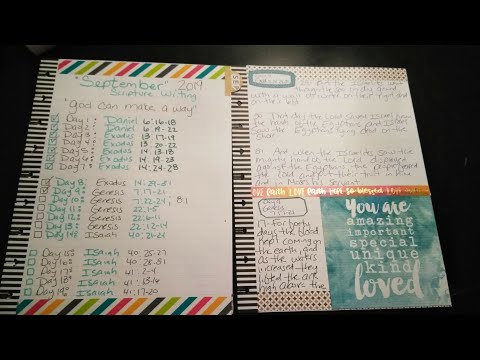 "September" 2019
Scripture Writing
"god can make a way"
Day 1: Daniel 6:16-18
Day 2: Daniel 6:19-22
Day 3: Exodus 13:17-19
Day 4: Exodus 14:13-18
Day 5: Exodus 14:19-23
Day 6: Exodus 14:24-28
Day 8: Exodus 14:29-31
Day 9: Genesis
Day 10: Genesis 7:22-24; 8:1
Day 11: Genesis 22:1-5
Day 12: Genesis
Day 13: Genesis 22:12-14
Day 14: Isaiah 40:21-24
Day 15: Isaiah 40:25-27
Day 16: Isaiah 40:28-31
Day 17: Isaiah 41:2-4
Day 18: Isaiah
Day 19: Isaiah 41:17-20
God
on their right and
on the left
30 That day the Lord saved Israel from
the Egyptians, and Israel
saw the Egyptians lying dead on the
31 And when the Israelites saw the
mighty hand of the Lord displayed
against the Egyptians, the people
the Lord and put their trust in him
and in Moses his servant.
LOVE FAITH LOVE FAITH so blessed
17 For forty
days the flood
kept coming on
the earth, and
as the waters
increased they
lifted the ark
high above the
You are
amazing
important
special
unique
kind
loved